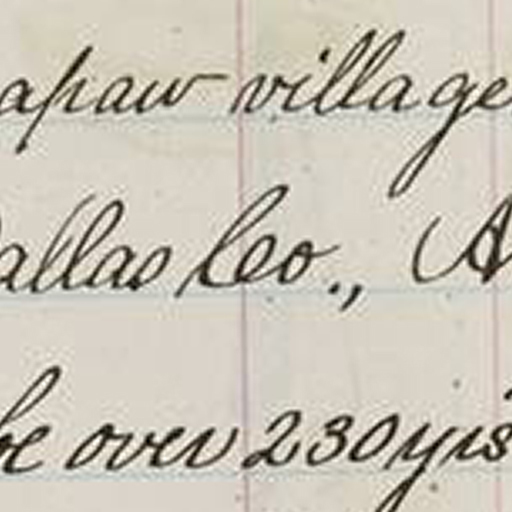 apaw village
allas Co., A
be over 230 yrs